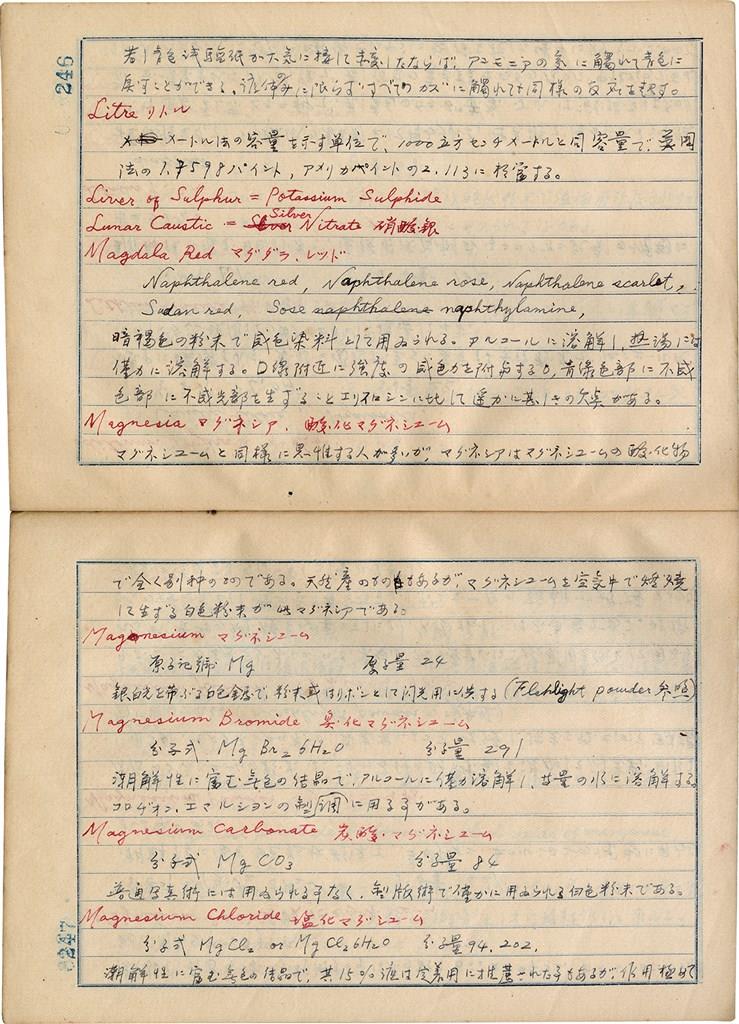 246
若し青色試験紙が大気に接して赤変したならば、アンモニアの気に觸れて青色に
戻すことができる、液体のみに限らずすべてのガスに觸れても同様の反応を起す。
Litre リトル
メートル法の容量を示す単位で、1000立方センチメートルと同容量で、英国
法の1.7598パイント、アメリカパイントの2.113に相當する。
Liver of Sulphur = Potassium Sulphide
Lunar Caustic = Silver Nitrate 硝酸銀
Magdala Red マグダラ、レッド
Naphthalene red, Naphthalene rose, Naphthalene scarlet,
Sudan red, Sose naphthalene naphthylamine,
暗褐色の粉末で感色染料として用ゐられる。アルコールに溶解し、熱湯には
僅かに溶解する。D線附近に強度の感色力を附与するも、青緑色部に不感
色部に不感光部を生ずることエリスロシンに比して遥かに甚しきの欠矣がある。
Magnesia マグネシア、酸化マグネシユーム
マグネシユームと同様に思惟する人が多いが、マグネシアはマグネシユームの酸化物
で全く別種のものである。天然産のものもあるが、マグネシユームを空気中で燃焼
して生ずる白色粉末が此マグネシアである。
Magnesium マグネシユーム
原子記號 Mg 原子量 24
銀白光を帯ぶる白色金属で、粉末或はリボンとして閃光用に供する (Flashlight powder 参照)
Magnesium Bromide 臭化マグネシユーム
分子式 Mg Br₂ 6H₂O 分子量 291
潮解性に富む無色の結晶で、アルコールに僅か溶解し、等量の水に溶解する。
コロヂオン、エマルションの製調に用る事がある。
Magnesium Carbonate 炭酸マグネシユーム
分子式 Mg CO₃ 分子量 84
普通写真術には用ゐられる事なく、製版術で僅かに用ゐられる白色粉末である。
Magnesium Chloride 塩化マグネシユーム
分子式 MgCl₂ or MgCl₂6H₂O 分子量 94, 202.
潮解性に富む無色の結晶で、其15%液は定着用に推薦された事もあるが、作用極めて
247